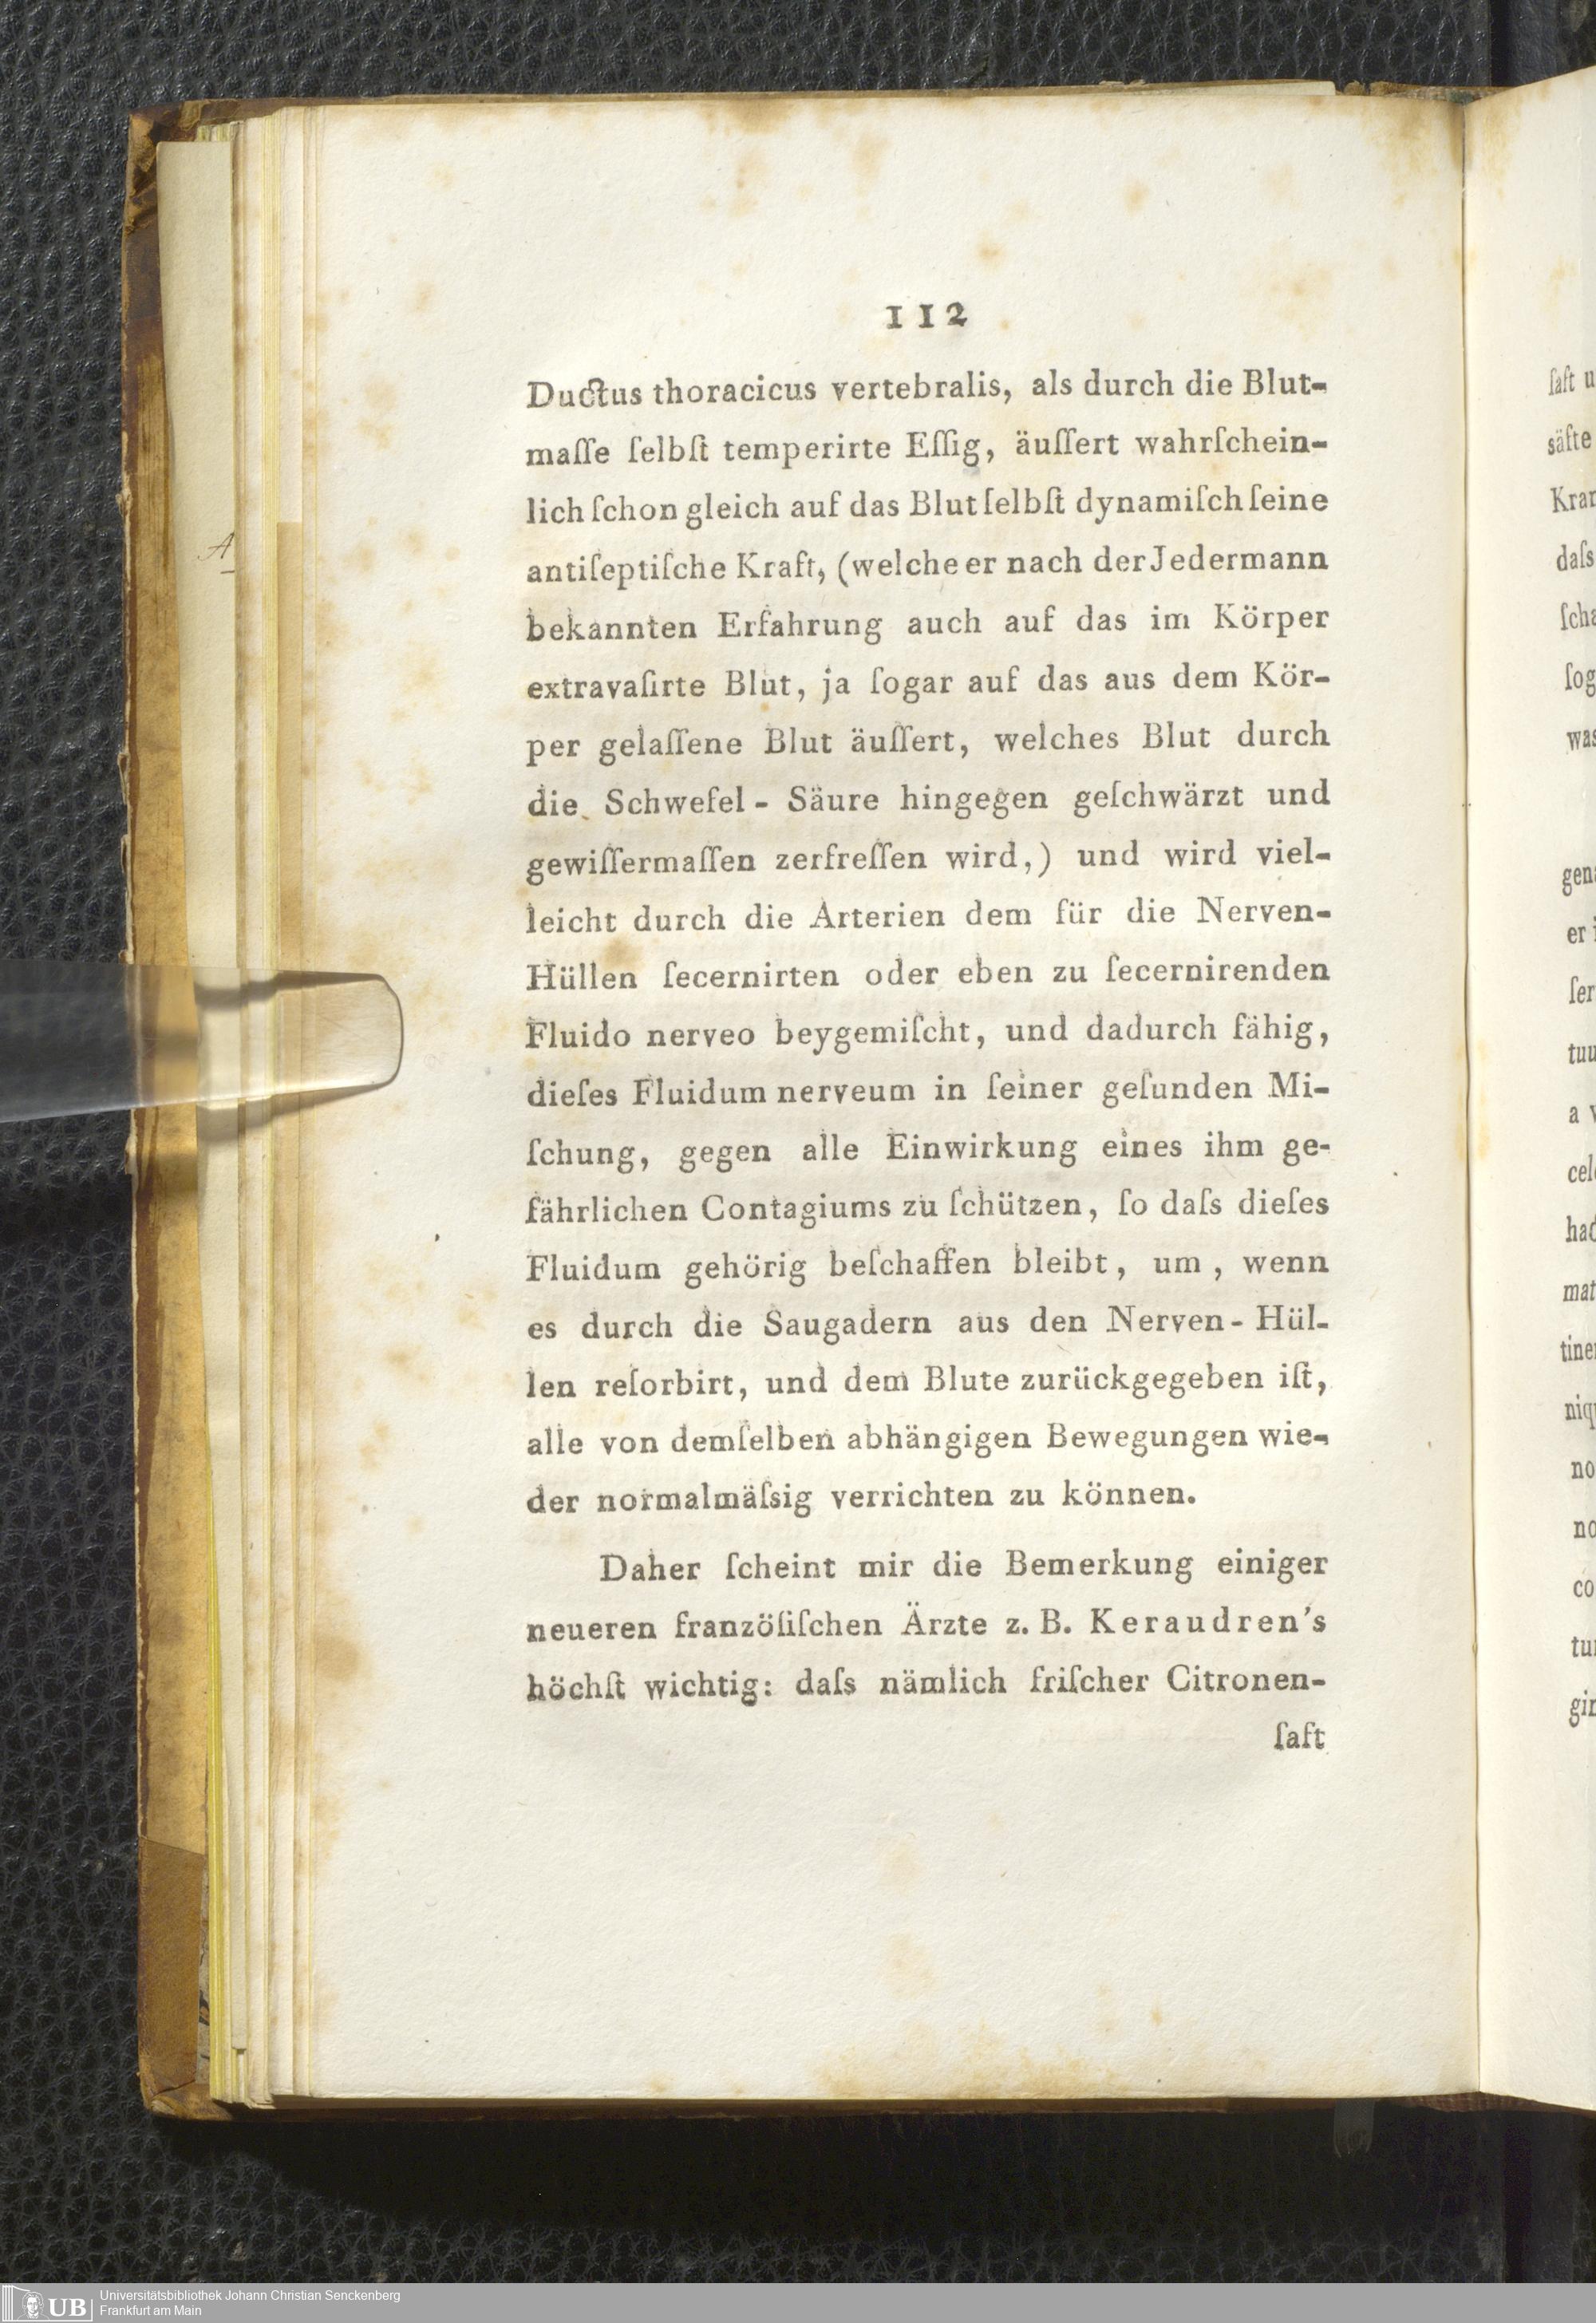 112
Ductus thoracicus vertebralis, als durch die Blut-
maſſe ſelbſt temperirte Eſſig, äuſſert wahrſchein-
lich ſchon gleich auf das Blut ſelbſt dynamiſch ſeine
antiſeptiſche Kraft, (welche er nach der Jedermann
bekannten Erfahrung auch auf das im Körper
extravaſirte Blut, ja ſogar auf das aus dem Kör-
per gelaſſene Blut äuſſert, welches Blut durch
die Schwefel - Säure hingegen geſchwärzt und
gewiſſermaſſen zerfreſſen wird,) und wird viel-
leicht durch die Arterien dem für die Nerven-
Hüllen ſecernirten oder eben zu ſecernirenden
Fluido nerveo beygemiſcht, und dadurch fähig,
dieſes Fluidum nerveum in ſeiner geſunden Mi-
ſchung, gegen alle Einwirkung eines ihm ge-
fährlichen Contagiums zu ſchützen, ſo daſs dieſes
Fluidum gehörig beſchaffen bleibt, um, wenn
es durch die Saugadern aus den Nerven - Hül-
len reſorbirt, und dem Blute zurückgegeben iſt,
alle von demſelben abhängigen Bewegungen wie-
der normalmäſsig verrichten zu können.
Daher ſcheint mir die Bemerkung einiger
neueren franzöſiſchen Ärzte z. B. Keraudren's
höchſt wichtig: daſs nämlich friſcher Citronen-
ſaft
A
ſaft u
säfte
Kran
daſs
ſcha
ſog
was
gen
er i
ſer
tuu
a v
cel
had
mat
tine
niq
no
no
co
tu
gin
UB
Universitätsbibliothek Johann Christian Senckenberg
Frankfurt am Main